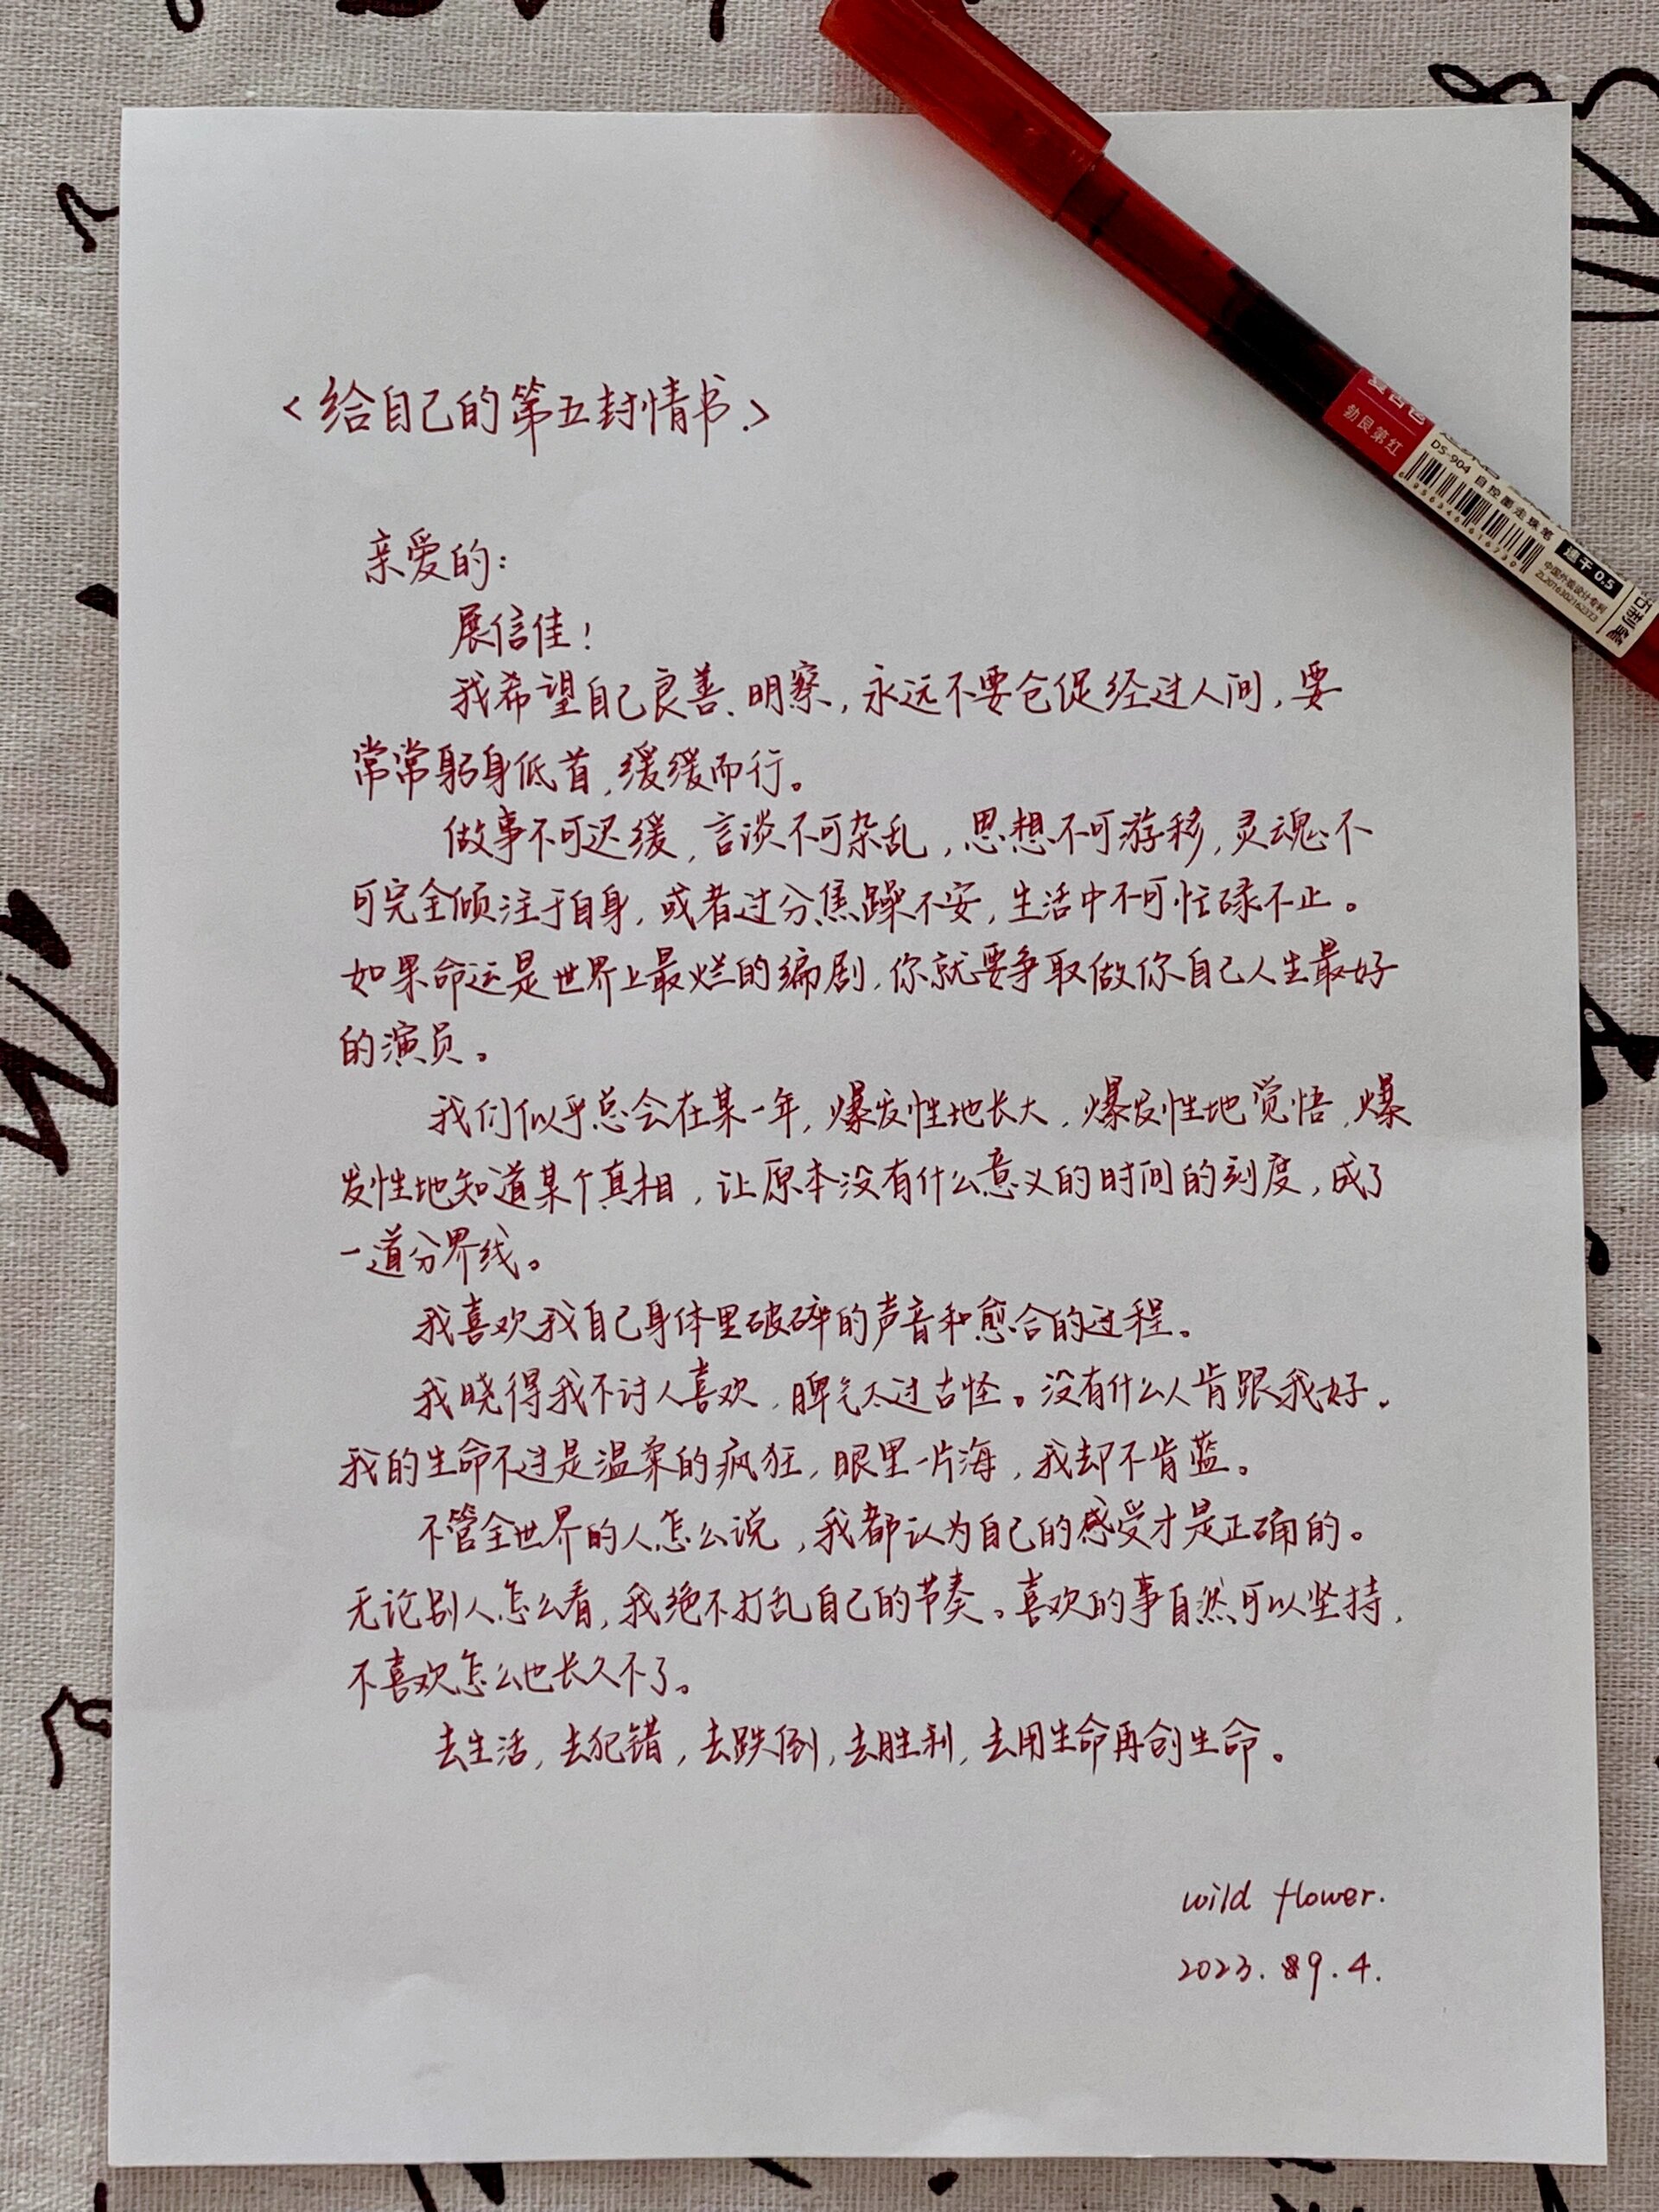 <给自己的第五封情书.>
亲爱的:
展信佳!
我希望自己良善、明察,永远不要仓促经过人间,要
常常躬身低首,缓缓而行。
做事不可迟缓,言谈不可杂乱,思想不可游移,灵魂不
可完全倾注于自身,或者过分焦躁不安,生活中不可忙碌不止。
如果命运是世界上最烂的编剧,你就要争取做你自己人生最好
的演员。
我们似乎总会在某一年,爆发性地长大,爆发性地觉悟,爆
发性地知道某个真相,让原本没有什么意义的时间的刻度,成了
一道分界线。
我喜欢我自己身体里破碎的声音和愈合的过程。
我晓得我不讨人喜欢,脾气太过古怪。没有什么人肯跟我好。
我的生命不过是温柔的疯狂,眼里一片海,我却不肯蓝。
不管全世界的人怎么说,我都认为自己的感受才是正确的。
无论别人怎么看,我绝不打乱自己的节奏。喜欢的事自然可以坚持,
不喜欢怎么也长久不了。
去生活,去犯错,去跌倒,去胜利,去用生命再创生命。
wild flower.
2023.9.4.
复古色
勃艮第红
DS-904 自控墨走珠笔
6956346616730
速干 0.5
中国外观设计专利
ZL201630216237.3